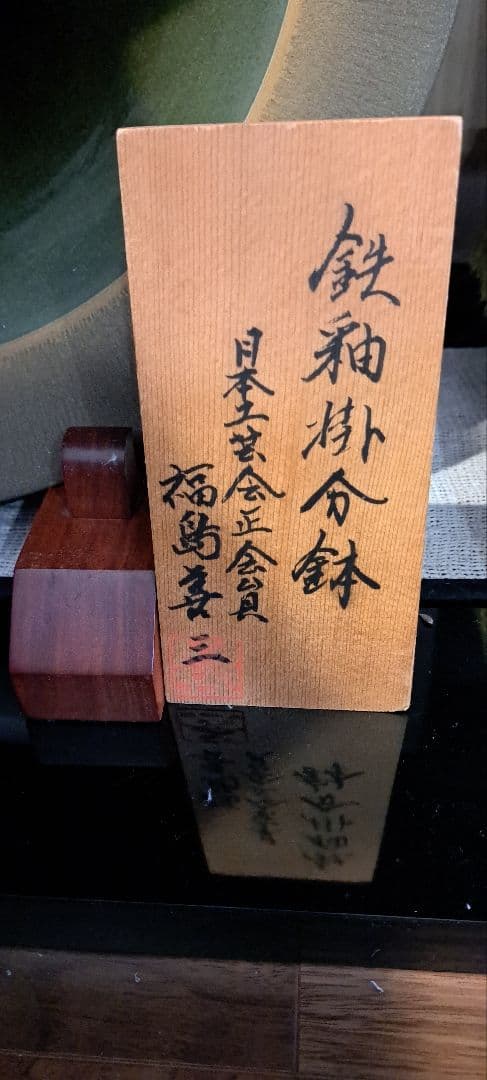 鉄釉掛分鉢
日本工芸会正会員
福島善三